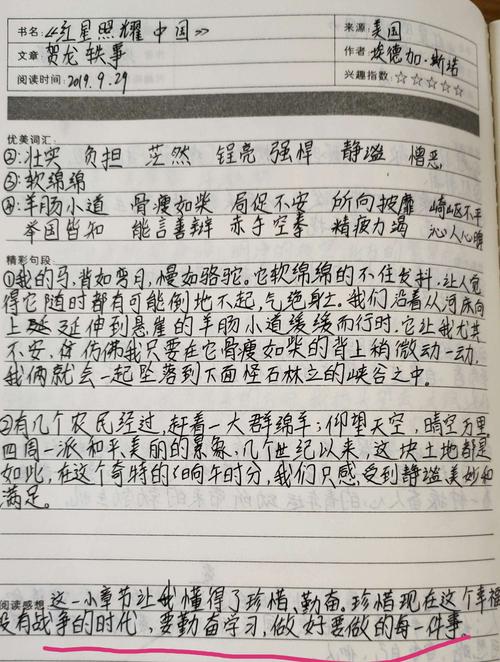 书名:《红星照耀中国》 来源:美国
文章 贺龙轶事 作者 埃德加·斯诺
阅读时间:2019.9.29 兴趣指数:☆☆☆☆☆
优美词汇:
②:壮实 负担 茫然 锃亮 强悍 静谧 憎恶
③:软绵绵
④:羊肠小道 骨瘦如柴 局促不安 所向披靡 崎岖不平
举国皆知 能言善辩 赤手空拳 精疲力竭 沁人心脾
精彩句段:
①我的马,背如弯月,慢如骆驼。它软绵绵的不住发抖,让人觉
得它随时都有可能倒地不起,气绝身亡。我们沿着从河床向
上延伸到悬崖的羊肠小道缓缓而行时,它让我尤其
不安,仿佛我只要在它骨瘦如柴的背上稍微动一动,
我俩就会一起坠落到下面怪石林立的峡谷之中。
②有几个农民经过,赶着一大群绵羊;仰望天空,晴空万里
四周一派和平美丽的景象,几个世纪以来,这块土地都是
如此,在这个奇特的晌午时分,我们只感受到静谧、美妙和
满足。
阅读感想 这一小章节让我懂得了珍惜、勤奋。珍惜现在这个幸福
没有战争的时代,要勤奋学习,做好要做的每一件事。